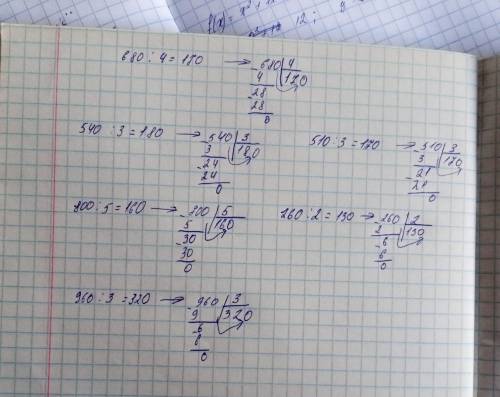 f(x) = x²
12 ;
680 : 4 = 170 → - 680 | 4
4 | 170
- 28
28
0
540 : 3 = 180 → - 540 | 3
3 | 180
- 24
24
0
510 : 3 = 170 → - 510 | 3
3 | 170
- 21
21
0
800 : 5 = 160 → - 800 | 5
5 | 160
- 30
30
0
260 : 2 = 130 → - 260 | 2
2 | 130
- 6
6
0
960 : 3 = 320 → - 960 | 3
9 | 320
- 6
6
0